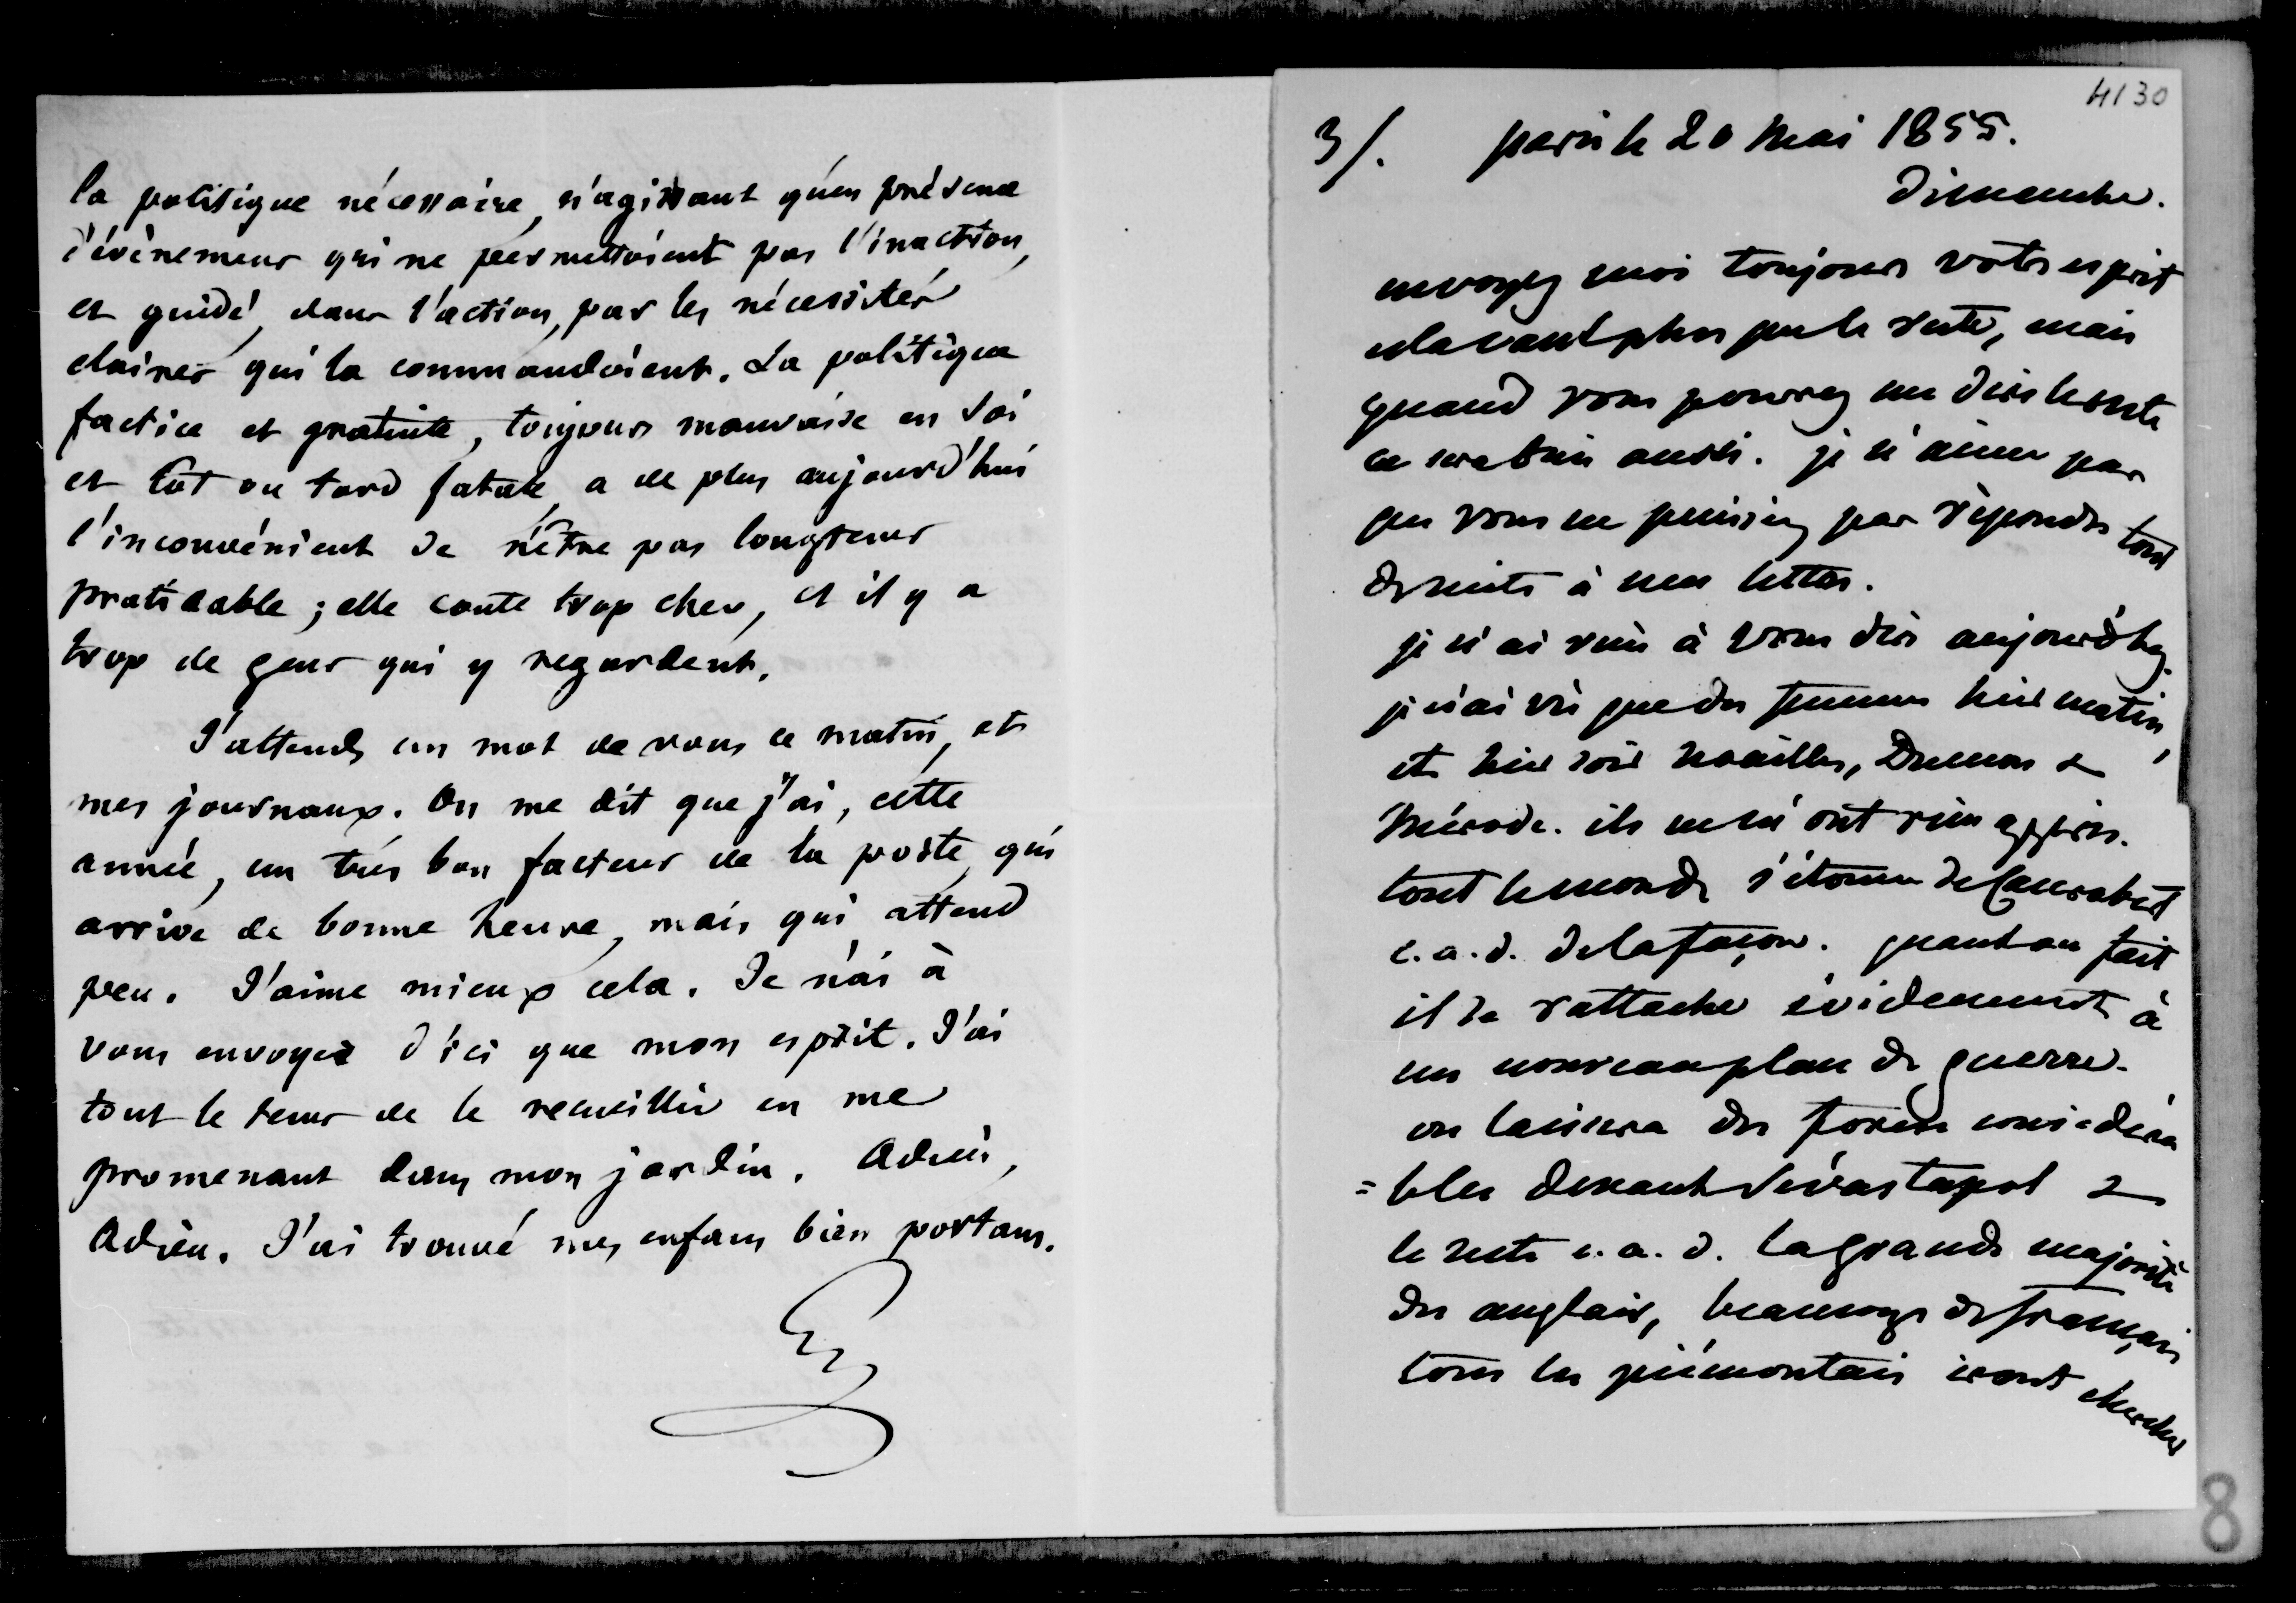 la politique nécessaire, n'agissant qu'en présence
d'évènemens qui ne permettoient pas l'inaction,
et guidé, dans l'action, par les nécessités
claires qui la commandoient. La politique
factice et gratuite, toujours mauvaise en soi
et tôt ou tard fatale, a de plus aujourd'hui
l'inconvénient de n'être pas longtems
praticable ; elle coute trop cher, et il y a
trop de gens qui y regardent.
J'attends un mot de vous ce matin, et
mes journaux. On me dit que j'ai, cette
année, un très bon facteur de la poste, qui
arrive de bonne heure, mais qui attend
peu. J'aime mieux cela. Je n'ai à
vous envoyer d'ici que mon esprit. J'ai
tout le tems de le recueillir en me
promenant dans mon jardin. Adieu,
Adieu. J'ai trouvé mes enfans bien portans.
4130
3/. paris le 20 Mai 1855.
Dimanche.
envoyez moi toujours votre esprit
cela vaut plus que le reste, mais
quand vous pourrez me dire le reste
ce sera bien aussi. je n'aime pas
que vous ne puissiez pas répondre tout
de suite à mes lettres.
je n'ai rien à vous dire aujourd'hy.
je n'ai vu que des femmes hier matin,
et hier soir Noailles, Dumon &
Mérode. ils ne m'ont rien appris.
tout le monde s'étonne de Canrobert
c. a. d. de la façon. quant au fait
il se rattache évidemment à
un nouveau plan de guerre.
on laissera des forces considéra
= bles devant Sévastopol &
le reste c. a. d. la grande majorité
des anglais, beaucoup de français
tous les piémontais iront chercher
8